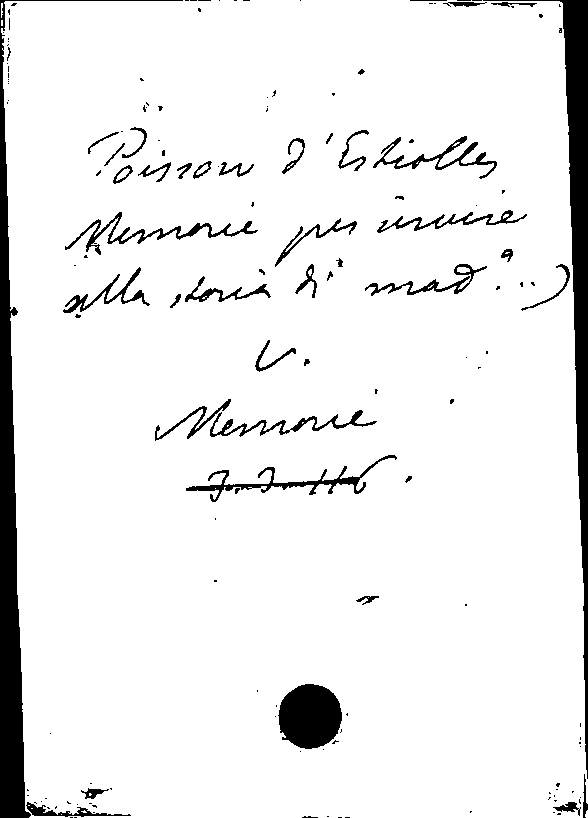 Poisson d'Estiolles
Memorie per servire
alla storia di mad.ª ..)
V.
Memorie